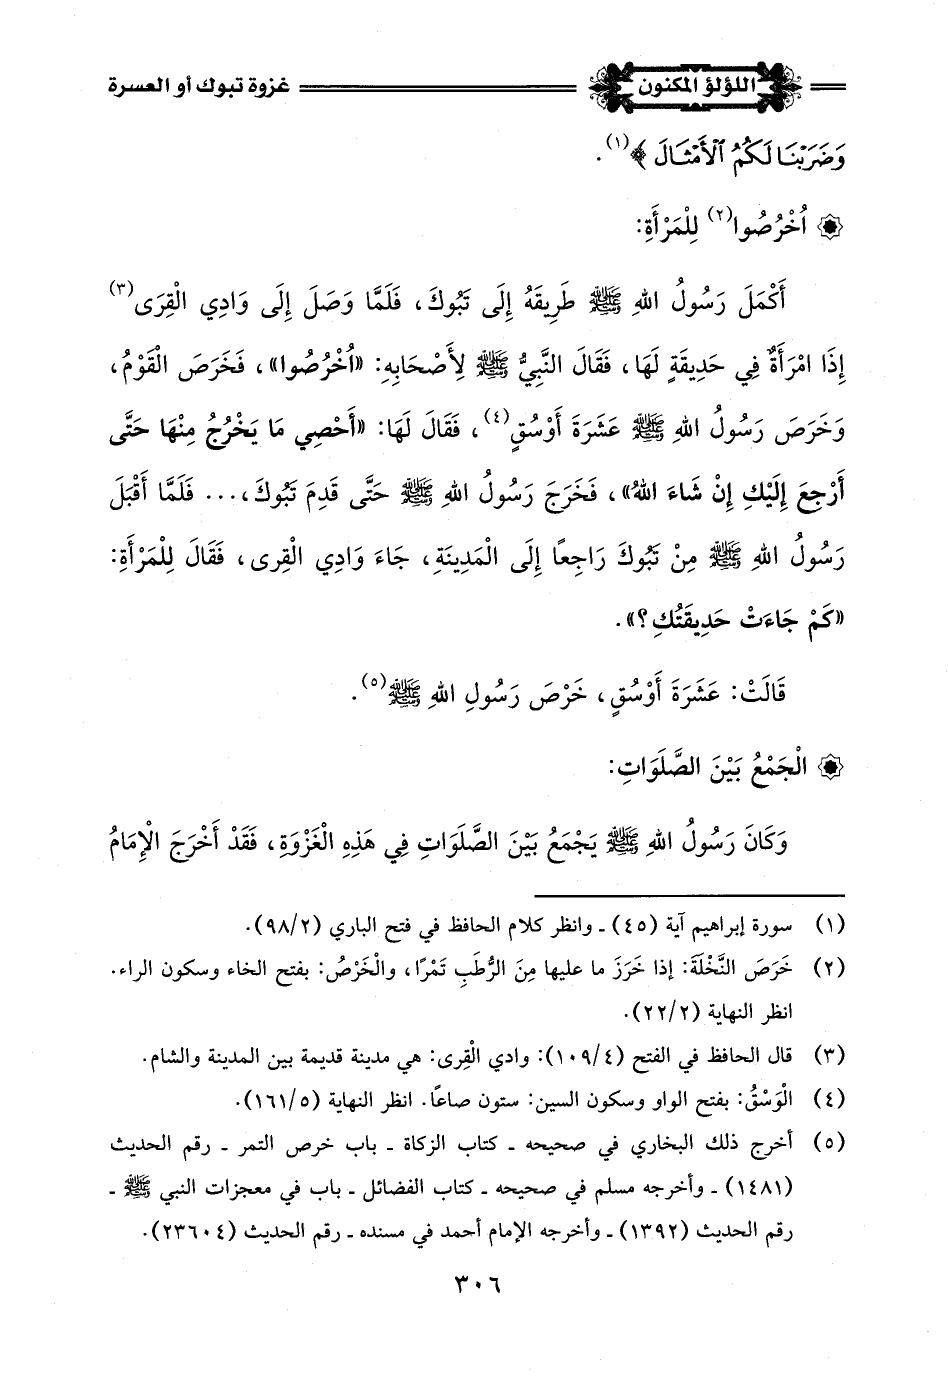 اللؤلؤ المكنون غزوة تبوك أو العسرة
وَضَرَبْنَا لَكُمُ ٱلْأَمْثَالَ ﴾(١).
۞ اُخْرُصُوا(٢) لِلْمَرْأَةِ:
أَكْمَلَ رَسُولُ اللهِ ﷺ طَرِيقَهُ إِلَى تَبُوكَ، فَلَمَّا وَصَلَ إِلَى وَادِي الْقِرَى(٣)
إِذَا امْرَأَةٌ فِي حَدِيقَةٍ لَهَا، فَقَالَ النَّبِيُّ ﷺ لِأَصْحَابِهِ: «اُخْرُصُوا»، فَخَرَصَ الْقَوْمُ،
وَخَرَصَ رَسُولُ اللهِ ﷺ عَشَرَةَ أَوْسُقٍ(٤)، فَقَالَ لَهَا: «أَحْصِي مَا يَخْرُجُ مِنْهَا حَتَّى
أَرْجِعَ إِلَيْكِ إِنْ شَاءَ اللهُ»، فَخَرَجَ رَسُولُ اللهِ ﷺ حَتَّى قَدِمَ تَبُوكَ،... فَلَمَّا أَقْبَلَ
رَسُولُ اللهِ ﷺ مِنْ تَبُوكَ رَاجِعًا إِلَى الْمَدِينَةِ، جَاءَ وَادِي الْقِرى، فَقَالَ لِلْمَرْأَةِ:
«كَمْ جَاءَتْ حَدِيقَتُكِ؟».
قَالَتْ: عَشَرَةَ أَوْسُقٍ، خَرْصَ رَسُولِ اللهِ ﷺ(٥).
۞ الْجَمْعُ بَيْنَ الصَّلَوَاتِ:
وَكَانَ رَسُولُ اللهِ ﷺ يَجْمَعُ بَيْنَ الصَّلَوَاتِ فِي هَذِهِ الْغَزْوَةِ، فَقَدْ أَخْرَجَ الْإِمَامُ
(١) سورة إبراهيم آية (٤٥) ـ وانظر كلام الحافظ في فتح الباري (٩٨/٢).
(٢) خَرَصَ النَّخْلَةَ: إذا خَرَزَ ما عليها مِنَ الرُّطَبِ تَمْرًا، والْخَرْصُ: بفتح الخاء وسكون الراء.
انظر النهاية (٢٢/٢).
(٣) قال الحافظ في الفتح (١٠٩/٤): وادي الْقِرى: هي مدينة قديمة بين المدينة والشام.
(٤) الْوَسْقُ: بفتح الواو وسكون السين: ستون صاعًا. انظر النهاية (١٦١/٥).
(٥) أخرج ذلك البخاري في صحيحه ـ كتاب الزكاة ـ باب خرص التمر ـ رقم الحديث
(١٤٨١) ـ وأخرجه مسلم في صحيحه ـ كتاب الفضائل ـ باب في معجزات النبي ﷺ ـ
رقم الحديث (١٣٩٢) ـ وأخرجه الإمام أحمد في مسنده ـ رقم الحديث (٢٣٦٠٤).
٣٠٦